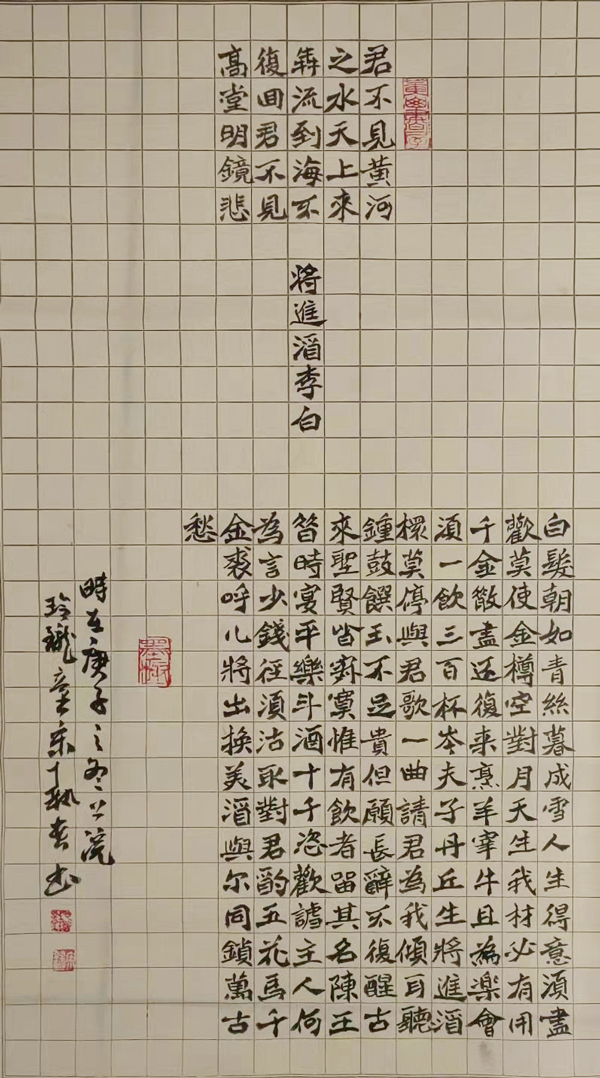 君不見黃河
之水天上來
犇流到海不
復回君不見
高堂明鏡悲
將進酒李白
白髮朝如青絲暮成雪人生得意須盡
歡莫使金樽空對月天生我材必有用
千金散盡還復来烹羊宰牛且為樂會
須一飲三百杯岑夫子丹丘生將進酒
杯莫停與君歌一曲請君為我傾耳聽
鍾鼓饌玉不足貴但願長醉不復醒古
來聖賢皆寂寞惟有飲者留其名陳王
昔時宴平樂斗酒十千恣歡謔主人何
為言少錢徑須沽取對君酌五花馬千
金裘呼儿將出換美酒與尔同銷萬古
愁
時在庚子之冬上浣
玲瓏